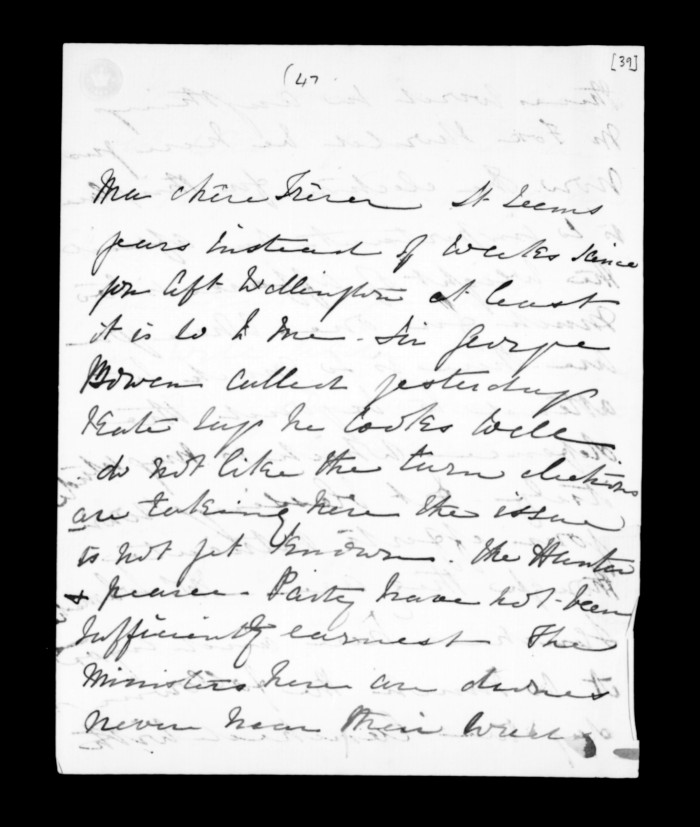 (47
[39]
Ma chère Frère It seems
years instead of weeks since
you left Wellington at least
it is so to me. Sir George
Bowen called yesterday
Kate says he looks well
do not like the turn elections
are taking here the issue
is not yet known. The Hunter
& pearce. Party have not been
sufficiently earnest The
Ministers here are
never hear their